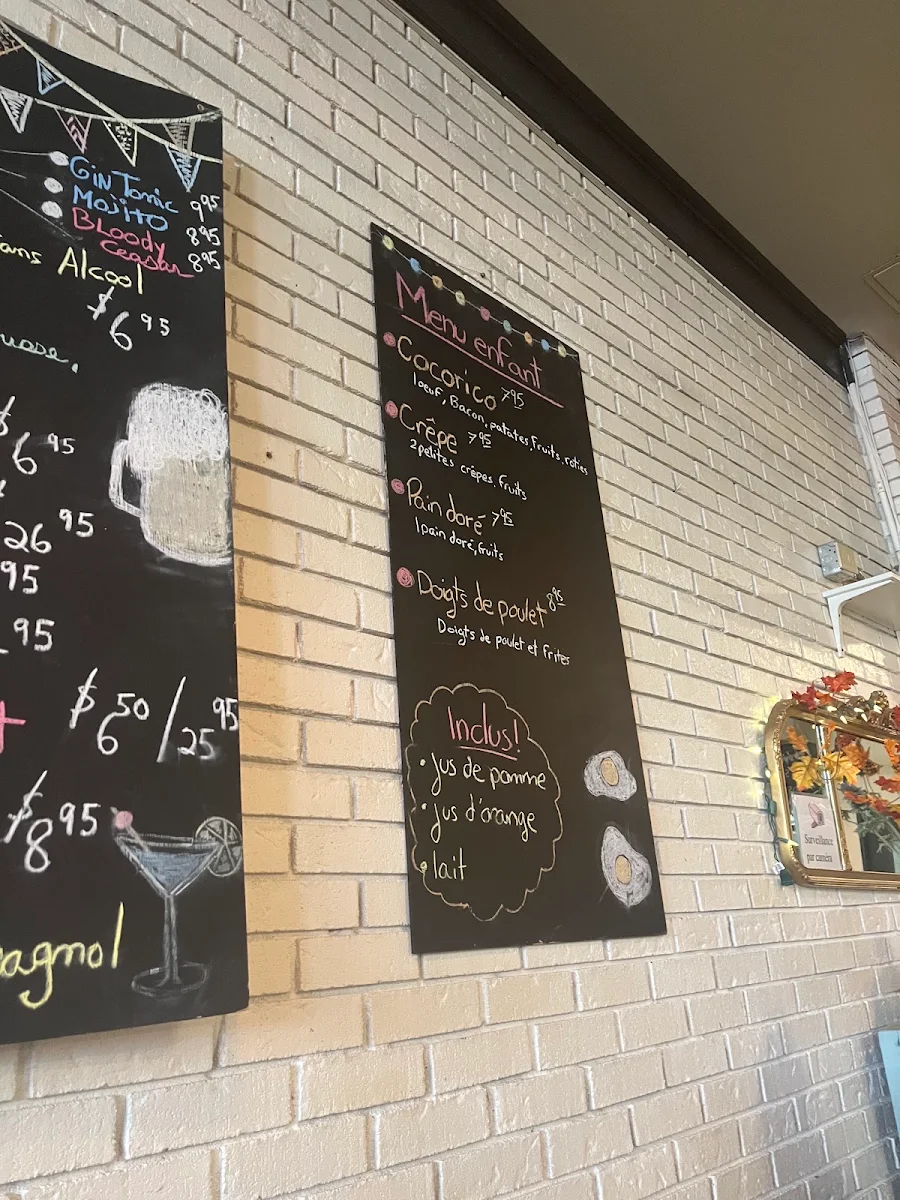 Gin Tonic 9.95
Mojito 8.95
Bloody Ceasar 8.95
sans Alcool
$6.95
$6.95
26.95
95
95
$6.50/25.95
$8.95
agnol
Menu enfant
Cocorico 7.95
1 oeuf, Bacon, patates, fruits, roties
Crêpe 7.95
2 petites crêpes, fruits
Pain doré 7.95
1 pain doré, fruits
Doigts de poulet 8.95
Doigts de poulet et frites
Inclus!
• jus de pomme
• jus d'orange
• lait
Surveillance
par caméra